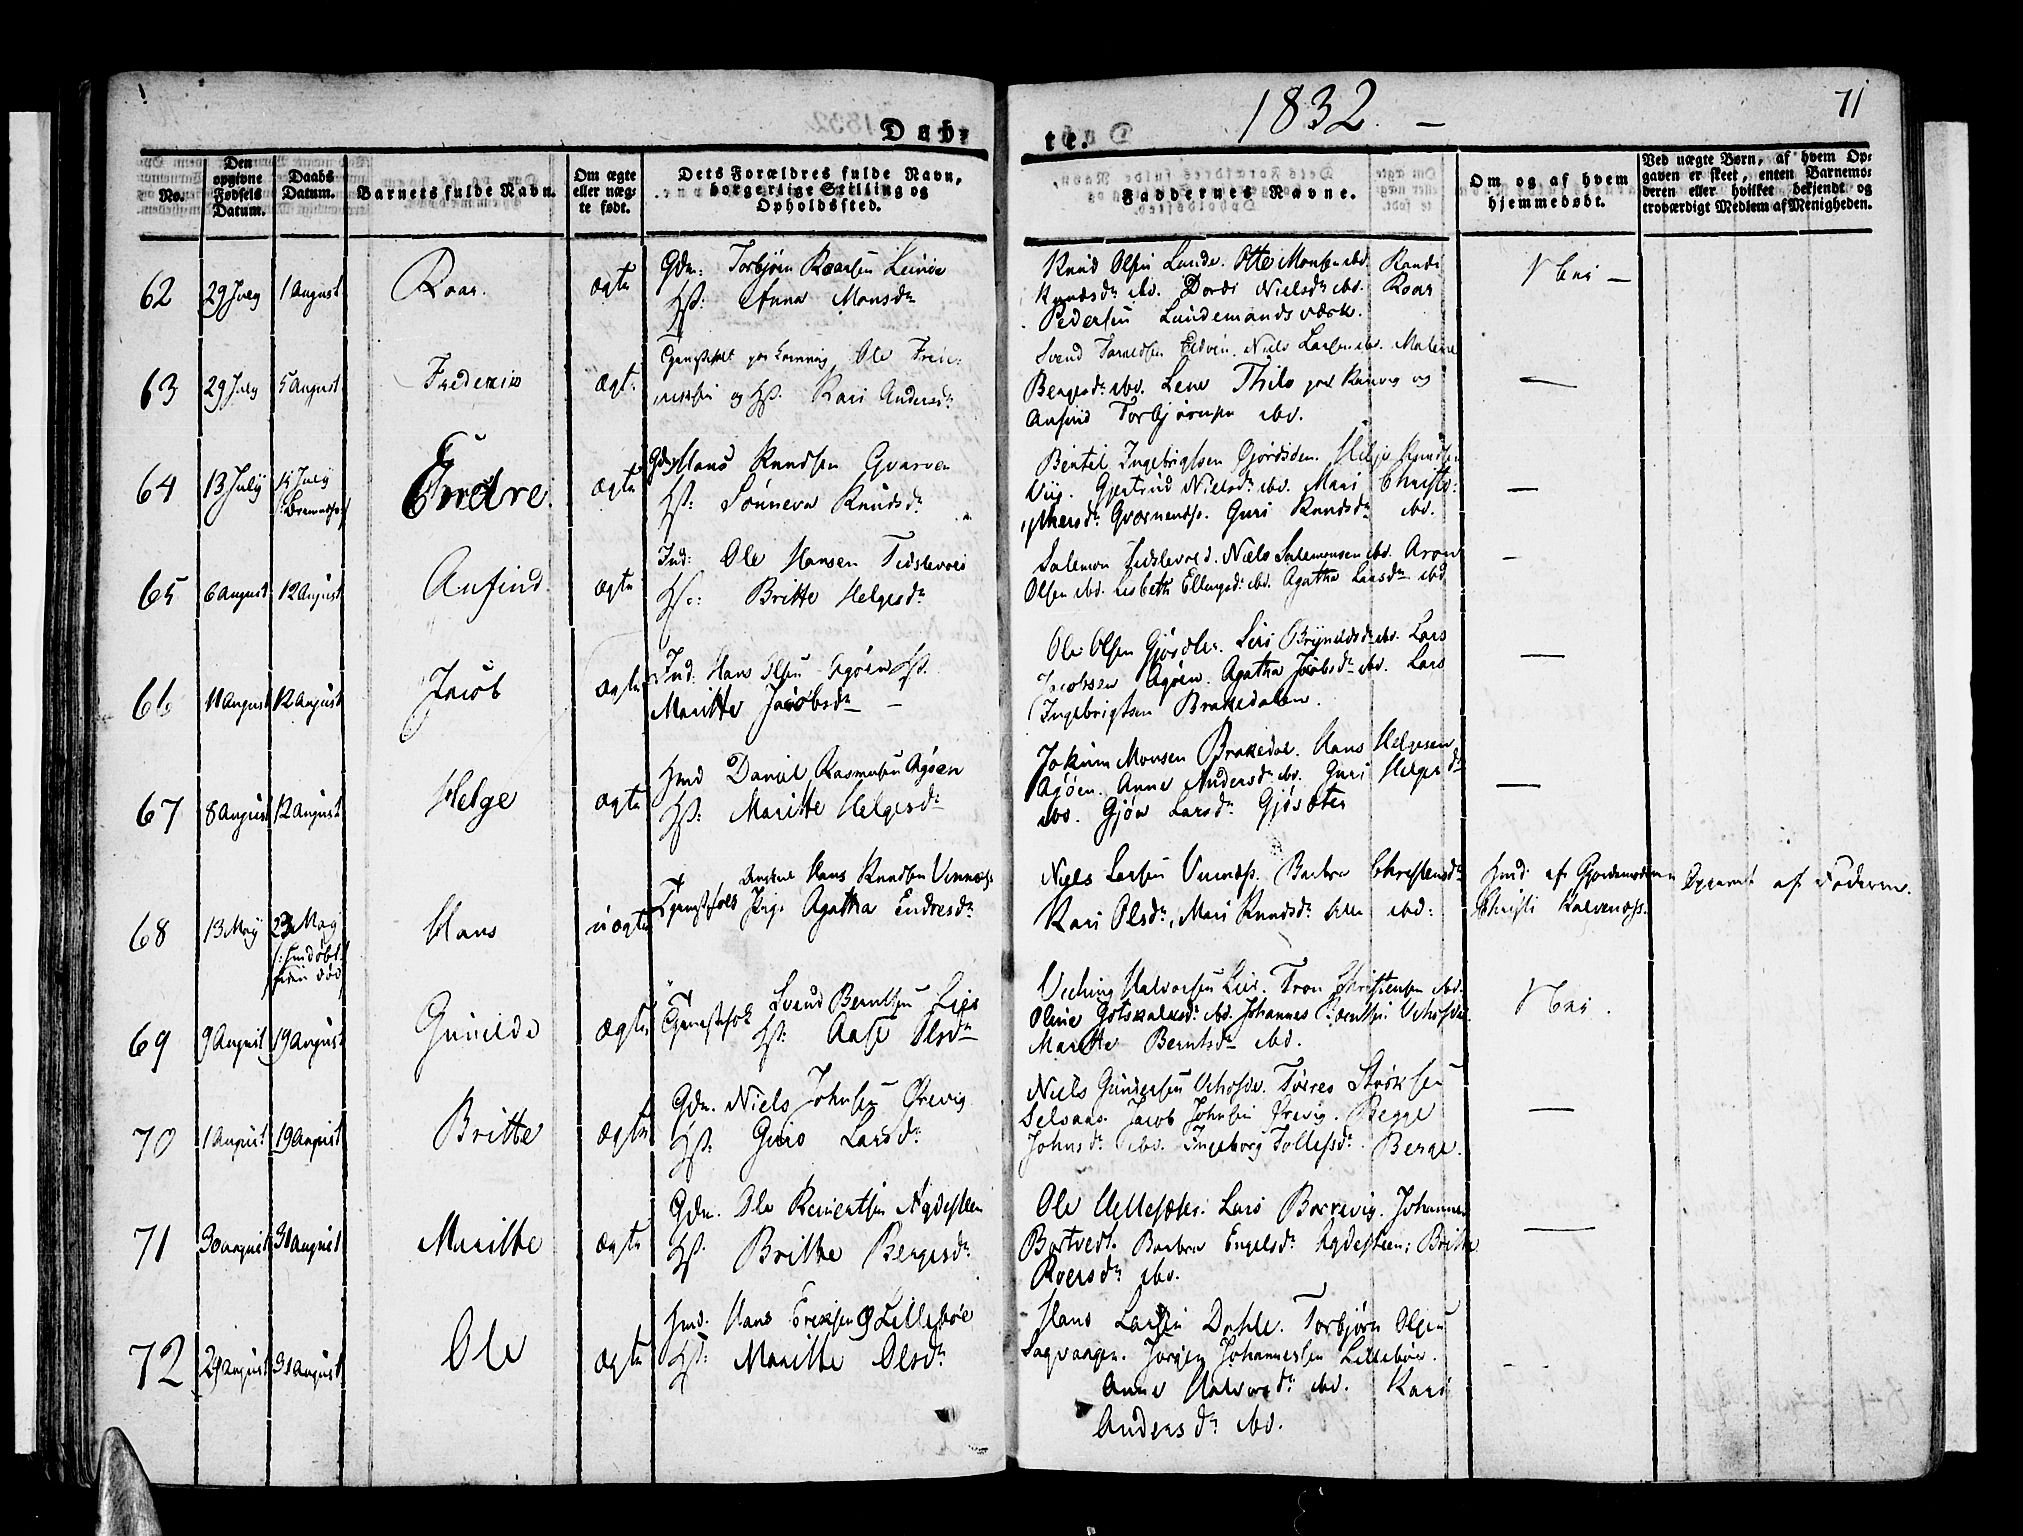 1832. –
71
Døb-
te.
No.
Den opgivne Fødsels Datum.
Daabs Datum.
Barnets fulde Navn.
Om ægte eller uægte født.
Dets Forældres fulde Navn, borgerlige Stilling og Opholdssted.
Faddernes Navne.
Om og af hvem hjemmedøbt.
Ved uægte Børn, af hvem Opgaven er skeet, enten Barnemoderen eller hvilket bekjendt og troværdigt Medlem af Menigheden.
62
29 July
1 August
Roar.
ægte
Gdm: Torbjøren Roarsen Lunde
Hst: Anna Monsdr
Knud Olsen Lunde. Otte Monsen ibd. Randi
Knudsdr ibd. Dordi Nielsdr ibd. Roar
Pedersen Lundemandsværk.
Nei –
63
29 July
5 August
Frederik
ægte
Ole
og Hst. Kari Andersdr
Svend Eldvin. Niels Larsen ibd. Malene
Bergesdr ibd. Lene Thilo og
Anfind Torbjørnsen ibd.
—
64
13 July
15 July
Endre.
ægte
Gdm Hans Knudsen Qvarven
Hst: Sønneva Knudsdr
Bentel Ingebrigtsen Helje
Viig. Gjertrud Nielsdr ibd. Mari Christo-
phersdr Guri Knudsdr ibd.
—
65
6 August
12 August
Anfind.
ægte
Ind: Ole Hansen Tidslevold
Hst: Britte Helgesdr
Salemon Tidslevold. Niels Salemonsen ibd. Aron
Olsen ibd. Lisbeth ibd. Agatha Larsdr ibd
–
66
11 August
12 August
Jacob
ægte
Ind. Hans Olsen Agøen Hst.
Maritte Jacobsdr –
Ole Olsen Siri Brynildsdr ibd. Lars
Jacobsen Agøen. Agatha Jacobsdr ibd. Lars
Ingebrigtsen Brakedalen.
—
67
8 August
12 August
Helge
ægte
Hmd Daniel Rasmusen Agøen
Hst: Maritte Helgesdr
Jokum Monsen Brakedal. Hans Helgesen
Agøen. Anne Andersdr ibd. Guri Helgesdr
ibd. Gjøa Larsdr Gjøsæter
—
68
13 May
23 May
Hans
uægte
Hans Knudsen
Pige Agatha Endresdr
Niels Larsen Barbra Christensdr
Kari Olsdr, Mari Knudsdr ibd:
Hmd. af Gjordemoderen
Christi Kalvenæss.
Opgivet af Faderen.
69
9 August
19 August
Gunilde
ægte
Svend Berntsen Lier
Hst: Aase Olsdr
Halvorsen Lier. Tron Christensen ibd.
Oline Gotskalksdr ibd. Johannes Berntsen
Maritte Berntsdr ibd.
Nei.
70
1 August
19 August
Britte
ægte
Gdm. Niels Johnsen Ørevig
Hst: Guro Larsdr
Niels Gundersen Torres
Selsaas. Jacob Johnsen Ørevig. Begge
Johnsdr ibd. Ingeborg Tollefsdr. Berge.
—
71
30 August
31 August
Maritte
ægte
Gdm. Ole Reinertsen Agdesteen
Hst. Britte Bergesdr
Ole Hellesæter. Lars Borrevig. Johannes
Bortvedt. Barbra Engelsdr Agdesteen; Britte
Roersdr ibd.
—
72
29 August
31 August
Ole
ægte
Hmd. Hans Eriksen Lillebøe
Hst: Maritte Olsdr
Hans Larsen Dahle. Torbjørn Olsen
Sagvaagen. Jørgen Johannessen Lillebøe.
Anne Halvorsdr ibd. Kari
Andersdr ibd.
– –